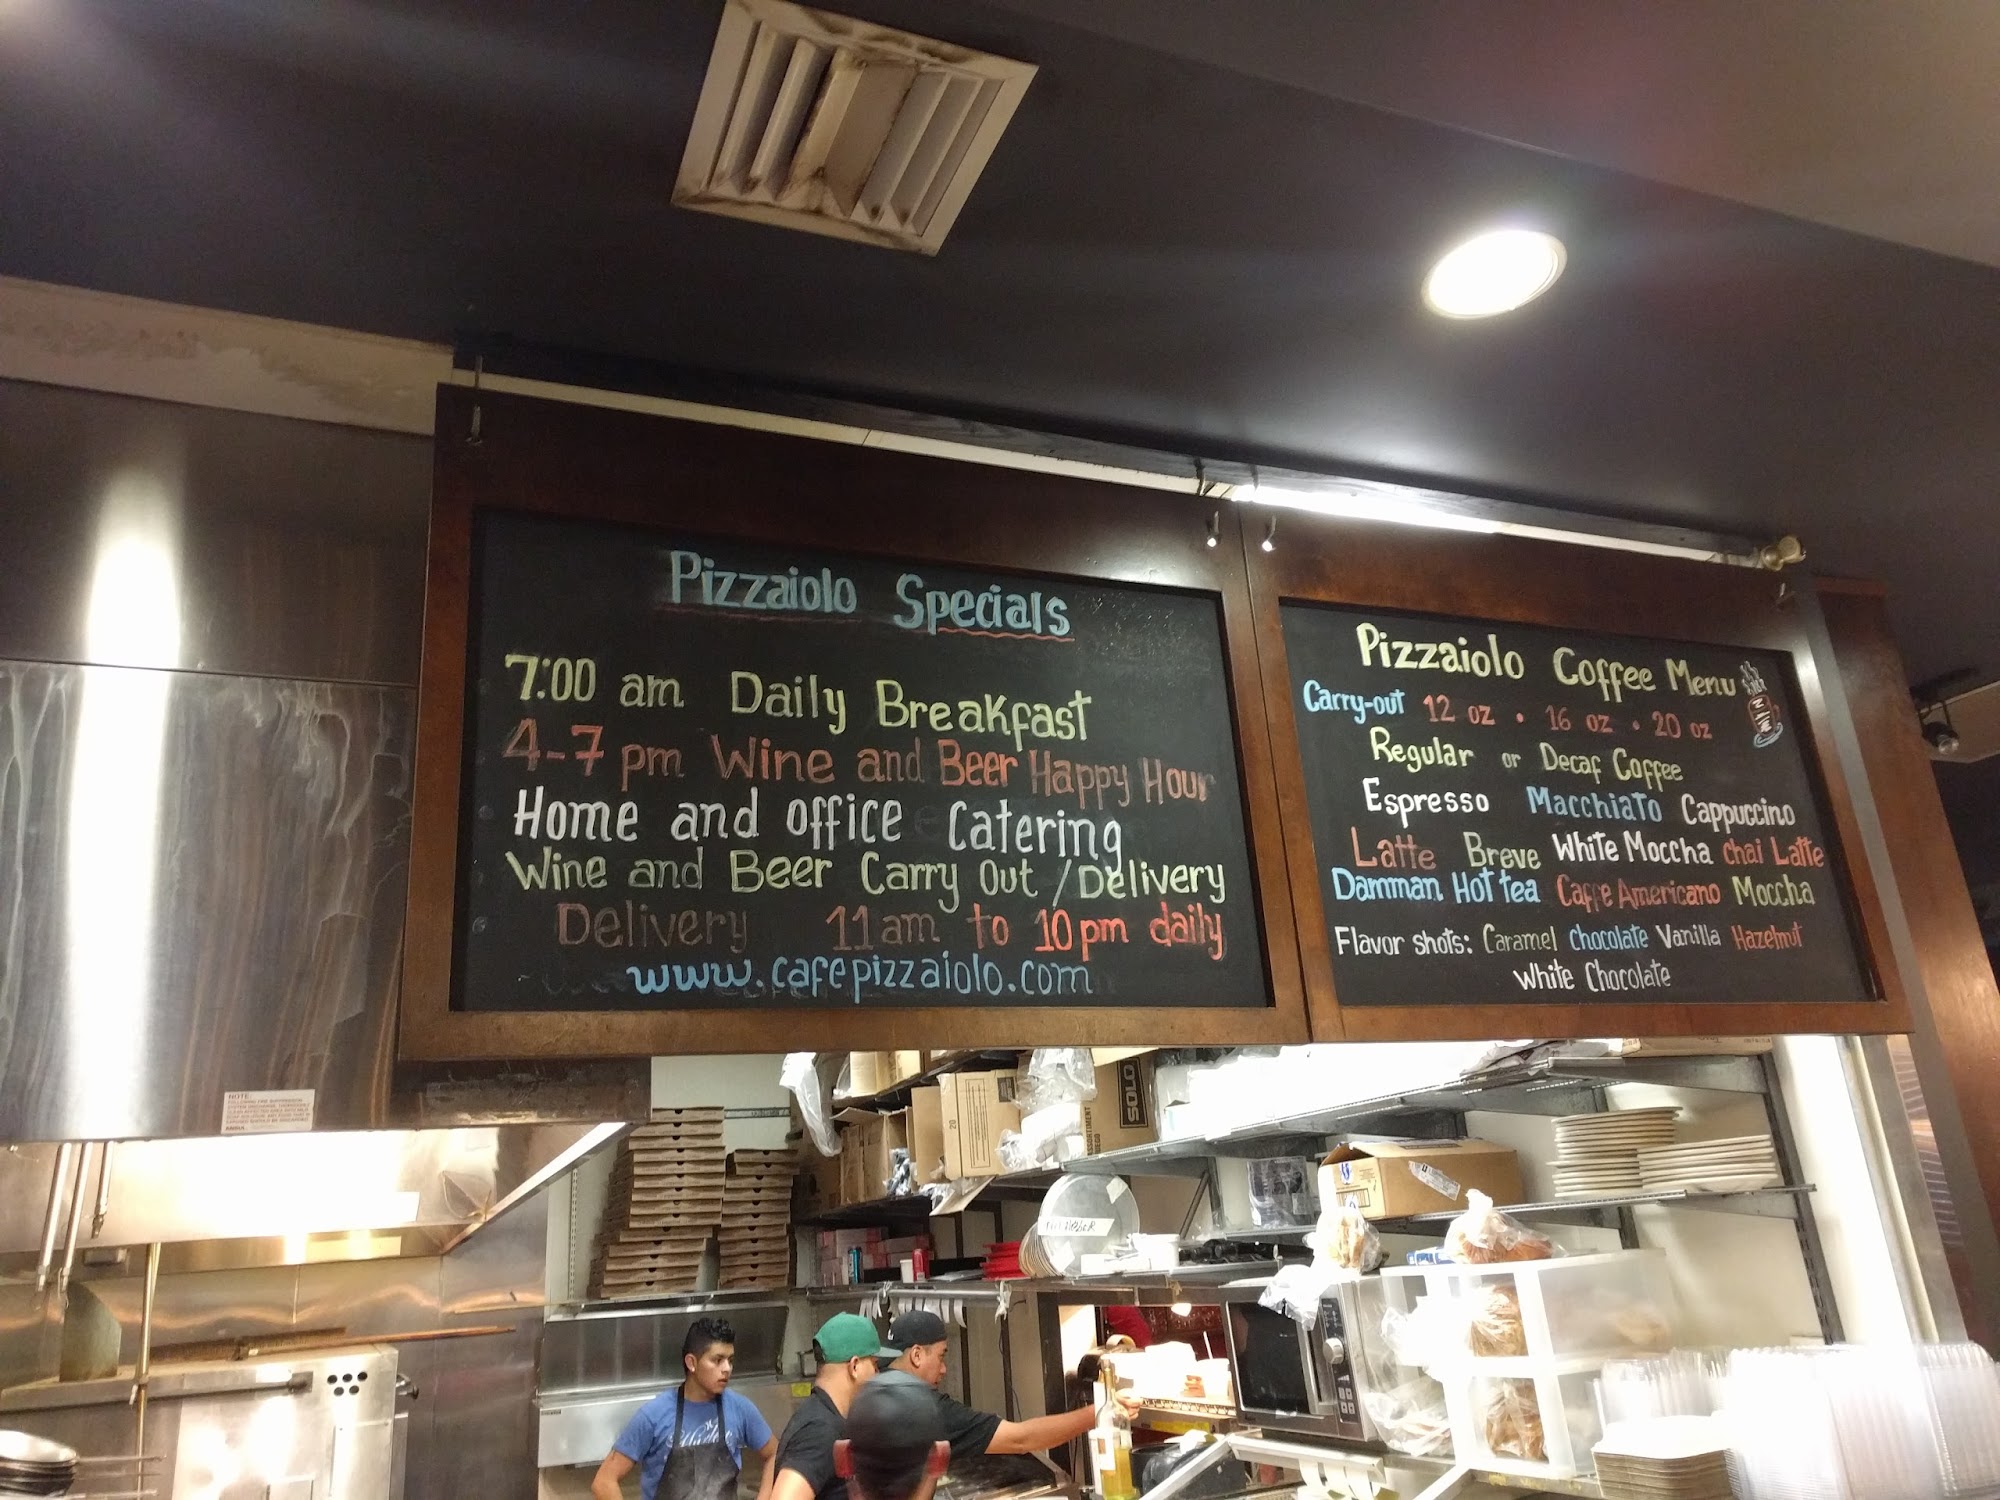 Pizzaiolo Specials
7:00 am Daily Breakfast
4-7 pm Wine and Beer Happy Hour
Home and office Catering
Wine and Beer Carry Out / Delivery
Delivery 11am to 10pm daily
www.cafepizzaiolo.com
Pizzaiolo Coffee Menu
Carry-out 12 oz • 16 oz • 20 oz
Regular or Decaf Coffee
Espresso Macchiato Cappuccino
Latte Breve White Moccha chai Latte
Damman Hot tea Caffe Americano Moccha
Flavor shots: Caramel chocolate Vanilla Hazelnut
White Chocolate
NOTE:
SOLO
20